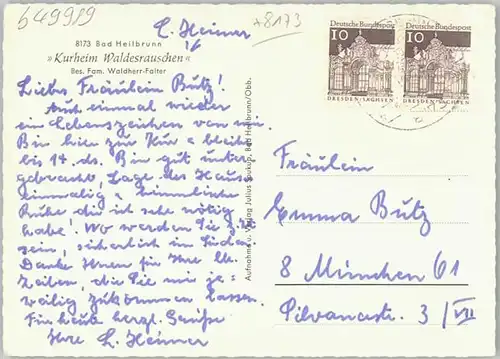 b49989
+8173
L. Heimer
8173 Bad Heilbrunn
»Kurheim Waldesrauschen«
Bes. Fam. Waldherr-Falter
Liebes Fräulein Butz!
Auch einmal wieder
ein Lebenszeichen von mir.
Bin hier zur Kur u. bleibe
bis 14. ds. Bin gut unter-
gebracht, Lage des Haus
einmalig u. himmlische
Ruhe die ich sehr nötig
habe! Wo werden Sie
sein, sicherlich im Süden.
Danke Ihnen für Ihre lb.
Zeilen, die Sie mir je-
weilig zukommen lassen.
Für heute herzl. Grüße
Ihre L. Heimer
Aufnahme u. Verlag Julius Soukup, Bad Heilbrunn/Obb.
Deutsche Bundespost
10
DRESDEN/SACHSEN
Deutsche Bundespost
10
DRESDEN/SACHSEN
Fräulein
Emma Butz
8 München 61
3/VII